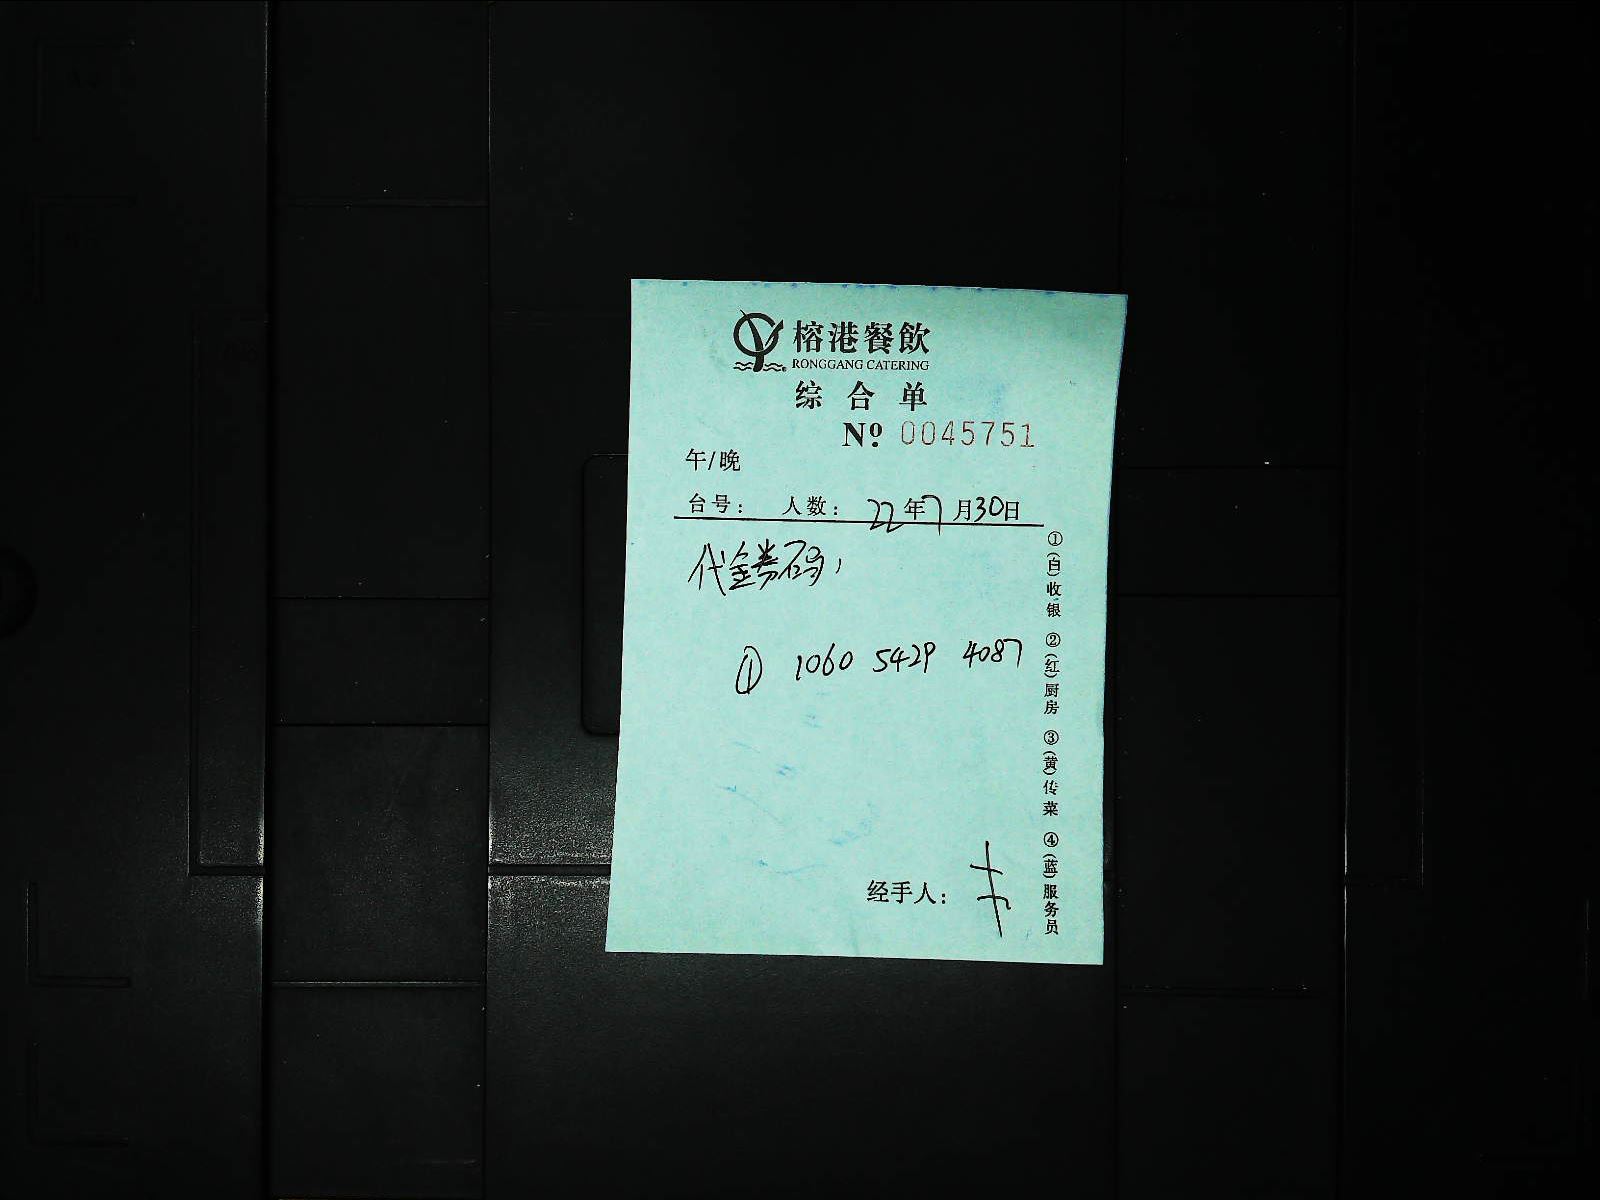 榕港餐飲
RONGGANG CATERING
综合单
Nº 0045751
午/晚
台号: 人数: 22年7月30日
代金券码:
① 1060 5429 4087
经手人:
①(白)收银 ②(红)厨房 ③(黄)传菜 ④(蓝)服务员